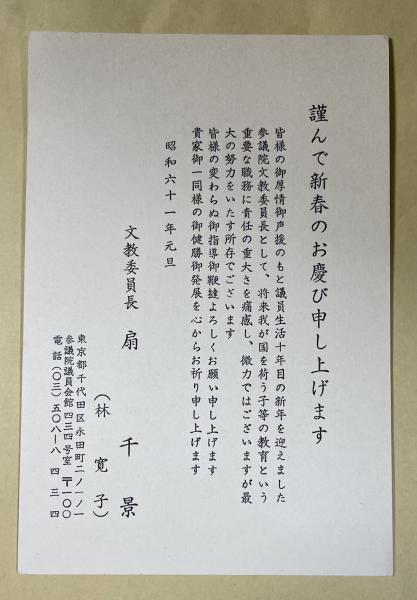 謹んで新春のお慶び申し上げます
皆様の御厚情御声援のもと議員生活十年目の新年を迎えました
参議院文教委員長として、将来我が国を荷う子等の教育という
重要な職務に責任の重大さを痛感し、微力ではございますが最
大の努力をいたす所存でございます
皆様の変わらぬ御指導御鞭撻よろしくお願い申し上げます
貴家御一同様の御健勝御発展を心からお祈り申し上げます
昭和六十一年元旦
文教委員長 扇 千景
（林 寛子）
東京都千代田区永田町二ノ一ノ一
参議院議員会館四三四号室 〒一〇〇
電話（〇三）五〇八ー八四三四